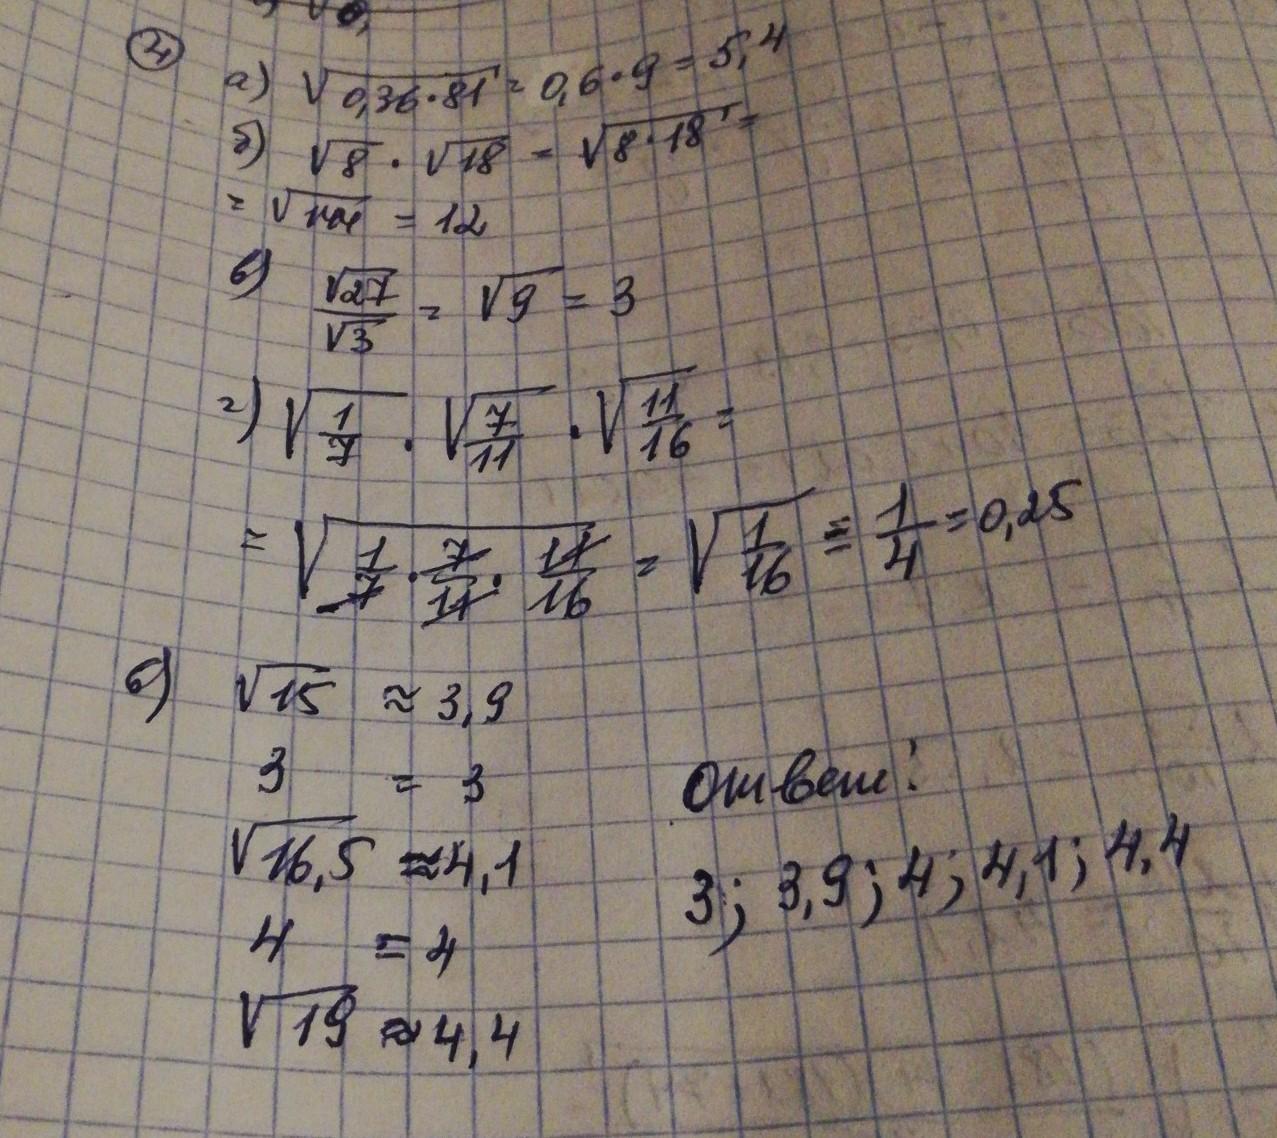 ④
а) √0,36·81 = 0,6·9 = 5,4
б) √8 · √18 = √8·18 =
= √144 = 12
в) √27/√3 = √9 = 3
г) √1/7 · √7/11 · √11/16 =
= √1/7 · 7/11 · 11/16 = √1/16 = 1/4 = 0,25
б) √15 ≈ 3,9
3 = 3
√16,5 ≈ 4,1
4 = 4
√19 ≈ 4,4
Ответ:
3; 3,9; 4; 4,1; 4,4